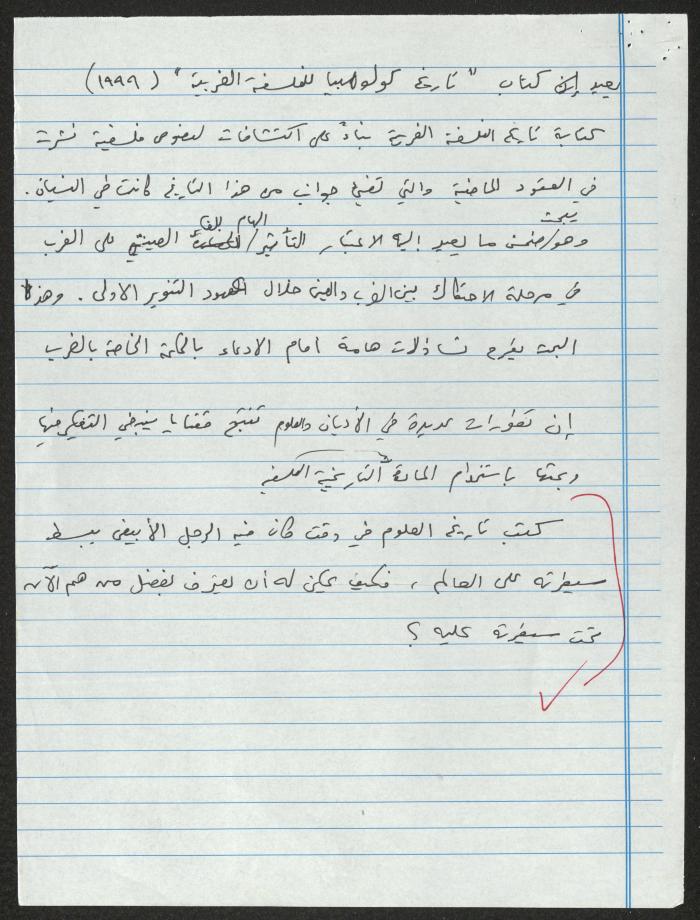 يعيد كتاب "تاريخ كولومبيا للفلسفة الغربية" (١٩٩٩)
كتابة تاريخ الفلسفة الغربية بناءً على اكتشافات لنصوص فلسفية نشرت
في العقود الماضية والتي تضيء جوانب من هذا التاريخ كانت طي النسيان.
يبحث الهام
وهو/ضمن ما يعيد اليه الاعتبار التأثير/ الصيني على الغرب
في مرحلة الاحتكاك بين الغرب والصين خلال العهود التنوير الاولى. وهذا
البحث يطرح تساؤلات هامة امام الادعاء بالحكمة الخاصة بالغرب
إن تطورات عديدة في الأديان والعلوم تنتج قضايا ينبغي التفكير فيها
وبحثها باستخدام المادة التاريخية الفلسفية
كتب تاريخ العلوم في وقت كان فيه الرجل الأبيض يبسط
سيطرته على العالم، فكيف يمكن له أن يعترف بفضل من هم الآن
تحت سيطرته عليه؟